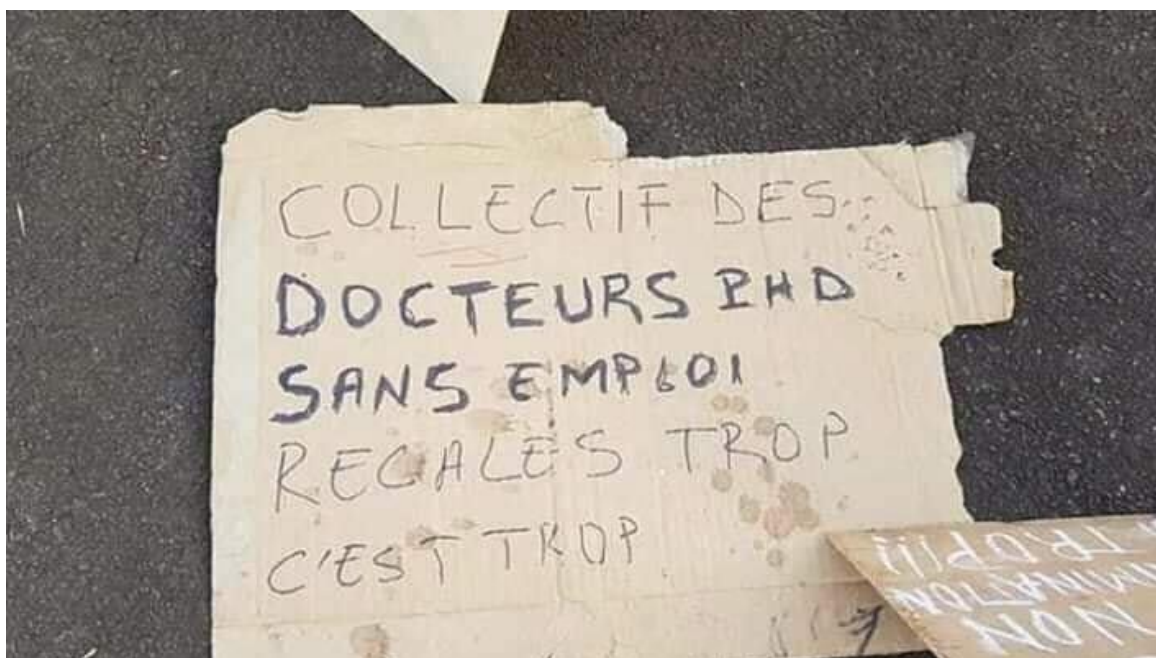 COLLECTIF DES
DOCTEURS PHD
SANS EMPLOI
RECALES TROP
C'EST TROP
NON
TROP!!!